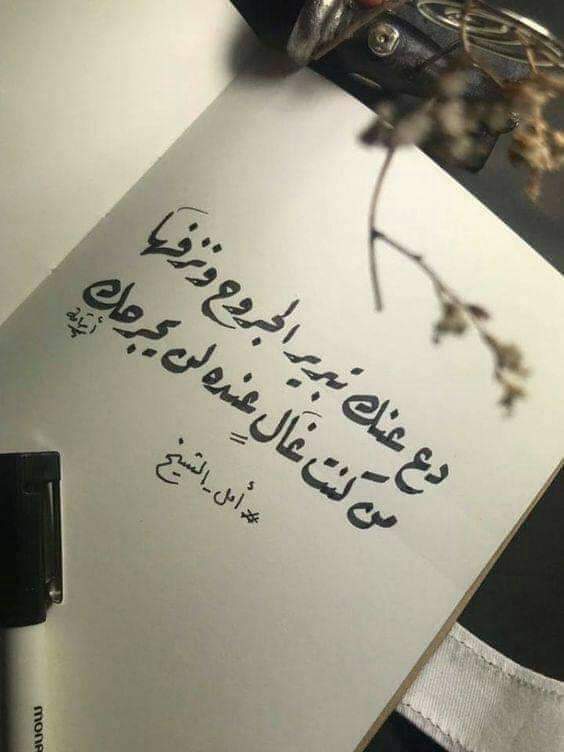 دع عنك تبرير الجروح ونزفها
من كنت غالٍ عنده لن يجرحك
#أمل_الشيخ
mona